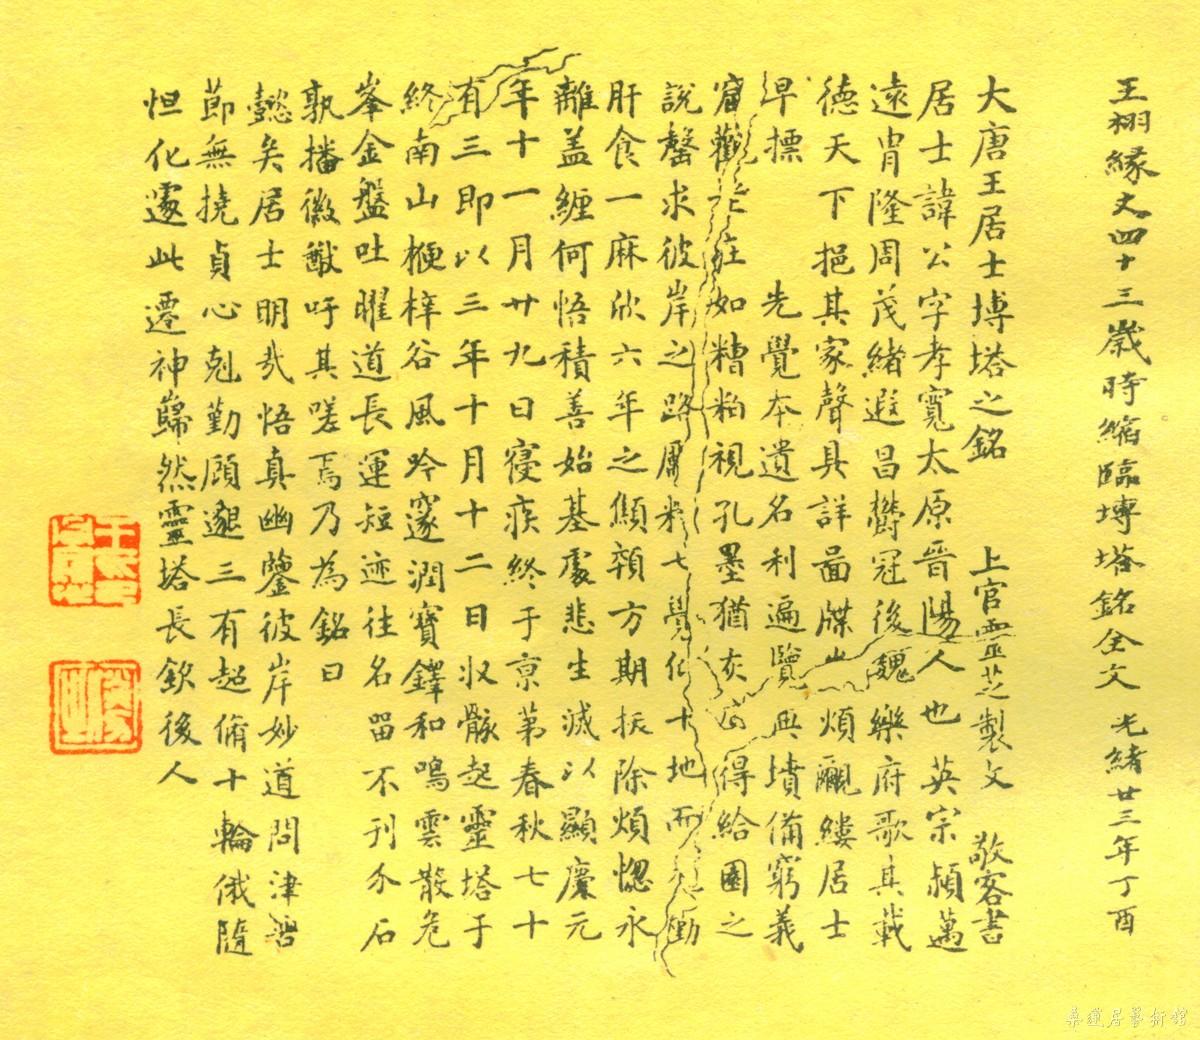 王栩緣丈四十三歲時縮臨塼塔銘全文 光緒廿三年丁酉
大唐王居士塼塔之銘 上官靈芝製文 敬客書
居士諱公字孝寬太原晉陽人也英宗熲邁
遠胄隆周茂緒遐昌鬱冠後魏樂府歌其載
德天下挹其家聲具詳啚牒此煩覼縷居士
早摽 先覺本遺名利遍覽典墳備窮義
窟觀老莊如糟粕視孔墨猶灰 得給園之
說罄求彼岸之路 七覺 十地而 慟
肝食一麻欣六年之顦顇方期拯除煩惱永
離盖纏何悟積善始基處悲生滅以顯慶元
年十一月廿九日寢疾終于京第春秋七十
有三即以三年十月十二日收骸起靈塔于
終南山楩梓谷風吟邃澗寶鐸和鳴雲散危
峯金盤吐曜道長運短迹往名留不刊介石
孰播徽猷吁其嗟焉乃為銘曰
懿矣居士明哉悟真幽鑒彼岸妙道問津
莭無撓貞心剋勤顧邈三有超脩十輪俄隨
怛化遽此遷神巋然靈塔長欽後人
華蓮居藝術館